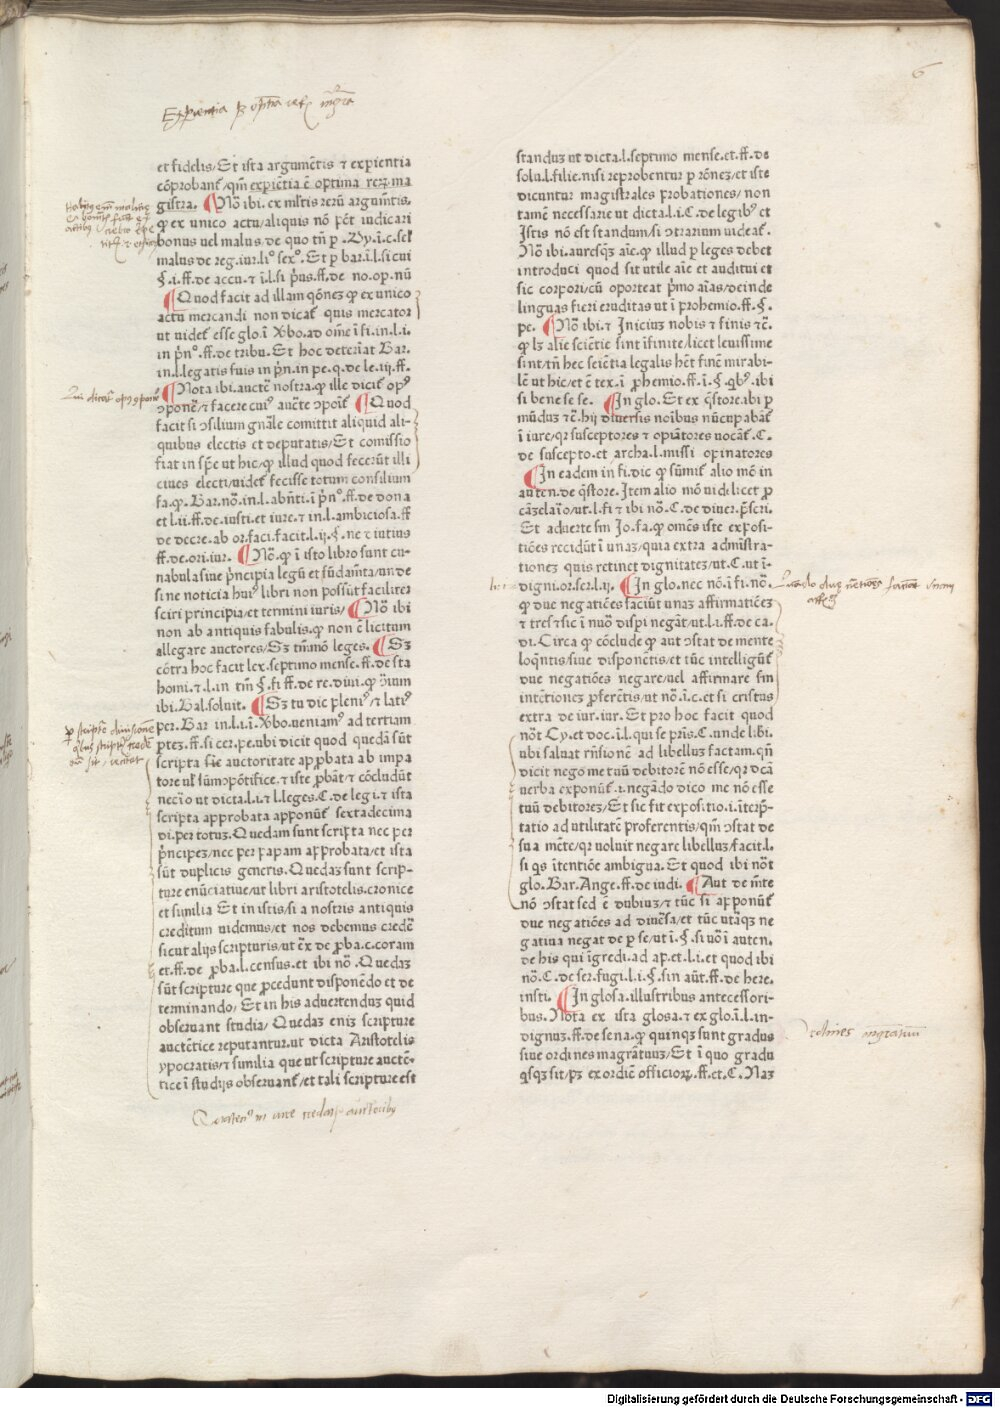 6
Experientia est optima rerum magistra
et fidelis/Et ista argumētis ⁊ expientia
cōprobant᷑/qm̄ expiētia ē optima reꝝ ma
gistra. Nō ibi. ex mltis rerū argumētis.
ꝙ ex unico actu/aliquis nō pōt iudicari
bonus uel malus/de quo tn̄ p . Dy.ī.c.sel
malus de reg.iur.liº sexº. Et p bar.ī.l.si cui
§.i.ff.de accu.⁊ ī.l.si p̄us.ff.de no.op.nū
Quod facit ad illam qōnez ꝙ ex unico
actu mercandi non dicat᷑ quis mercator
ut uidet᷑ esse glo.ī Xbo.ad om̄e ī fi.in.l.i.
in p̄nº.ff.de tribu. Et hoc determīat Bar.
in.l.legatis suis in p̄n.in pe.q.de le.iij.ff.
Nota ibi.aucte nostra.ꝙ ille dicit᷑ opꝰ
ↄponē/⁊ facere cuiꝰ aucte ↄpōit᷑ Quod
facit si ↄsilium gnāle comittit aliquid ali-
quibus electis et deputatis/Et comissio
fiat in spē ut hic/ꝙ illud quod fecerūt illi
ciues electi/uidet᷑ fecisse totum consilium
fa.ꝙ.Bar.nō.in.l.abn̄ti.ī p̄nº.ff.de dona
et l.ii.ff.de.iusti.et iure.⁊ in.l.ambiciosa.ff
de decre.ab or.faci.facit.l.ij.§.ne ⁊ iutius
ff.de.ori.iur. Nō.ꝙ ī isto libro sunt cu-
nabula siue p̄ncipia legū et fūdamta/unde
si ne noticia huiꝰ libri non possūt faciliter
sciri principia/et termini iuris/ Nō ibi
non ab antiquis fabulis.ꝙ non ē licitum
allegare auctores/Sʒ tm̄mō leges. Sʒ
cōtra hoc facit lex.septimo mense.ff.de sta
homi.⁊ l.in tm̄ §.fi ff.de re.diui.ꝙ ↄ̄rium
ibi.Bal.soluit. Sʒ tu dic pleniꝰ/⁊ latiꝰ
per.Bar in.l.i.ī Xbo.ueniamꝰ ad tertiam
ptez.ff.si cer.pe.ubi dicit quod quedā sūt
scripta siē auctoritate approbata ab impa
tore ul' sūmo pōtifice.⁊ iste probāt/⁊ cōcludūt
necīo ut dicta.l.i.⁊ l.leges.C.de leg i.⁊ ista
scripta approbata apponūt᷑ sextadecima
di.per totuz.Quedam sunt scripta nec per
p̄ncipez/nec per papam approbata/et ista
sūt duplicis generis.Quedaz sunt scrip-
ture enūciatiue/ut libri aristotelis.cronice
et similia Et in istis/si a nostris antiquis
creditum uidemus/et nos debemus credē
sicut alijs scripturis/ut ē̄x de ꝓba.c.coram
et.ff.de ꝓba.l.census.et ibi nō .Quedaz
sūt scripture que procedunt disponēdo et de
terminando/ Et in his aduertenduz quid
obseruant studia/ Quedaz eniz scripture
auctētice reputantur.ut dicta Aristotelis
ypocratis/⁊ similia que ut scripture auctē-
tice ī studijs obseruant᷑/et tali scripture est
standuz ut dicta.l.septimo mense.et.ff.de
solu.l.filie.nisi reprobentur p rōnez/et iste
dicuntur magistrales probationes/non
tamē necessarie ut dicta.l.i.C.de legibꝰ et
Istis nō est standum/si ↄtrarium uideat᷑.
Nō ibi.auresqʒ aīe.ꝙ illud p leges debet
introduci quod sit utile aīe et auditui et
sic corpori/cū oporteat p̄mo aīas/deinde
linguas fieri eruditas ut ī prohemio.ff.§.
pe. Nō ibi.⁊ Inicius nobis ⁊ finis ⁊c̄.
ꝙ lʒ alie sciētie sint īfinite/licet leuissime
sint/tn̄ hec sciētia legalis hēt finē mirabi-
lē ut hic/et ē tex.ī prohemio.ff.ī.§.qbꝰ.ibi
si bene se se. In glo. Et ex q̄store.ibi p
mūduz ⁊c̄.hij diuersis noībus nūcupabāt᷑
ī iure/qr susceptores ⁊ opiātores uocāt᷑.C.
de suscepto.et archa.l.missi opinatores
In eadem in fi.dic ꝙ sūmit᷑ alio mō in
auten.de q̄store.Item alio mō uidelicet p
cāzelaīo/ut.l.fi ⁊ ibi nō.C.de diuer.p̄scri.
Et aduerte fm Jo.fa.ꝙ omēs iste exposi-
tiōes recidūt ī unaz/quia extra admīstra-
tionez quis retinet dignitatez/ut.C.ut ī-
digni.or.ser.l.ij. In glo.nec nō.ī fi.nō.
ꝙ due negatiōes faciūt unaz affirmatiōez
⁊ tres/⁊ sic ī nuō dispi negāt/ut.l.i.ff.de ca.
di. Circa ꝙ cōclude ꝙ aut ↄstat de mente
loqntis/siue disponētis/et tūc intelligūt᷑
due negatiōes negare/uel affirmare fm
intētionez ꝓferētis/ut nō.ī.c.et si cristus
extra de iur.iur. Et pro hoc facit quod
nōt Cy.et doc.ī.l.qui se pris.C.unde libi.
ubi saluat rn̄sionē ad libelluz factam.qn̄
dicit nego me tuū debitorē nō esse/qr dcā
uerba exponūt᷑.i.negādo dico me nō esse
tuū debitorez/Et sic fit expositio.i.īterp̄-
tatio ad utilitatē proferentis/qm̄ ↄstat de
sua mēte/qr uoluit negare libelluz/facit.l.
si qs ītentiōe ambigua. Et quod ibi nōt
glo.Bar.Ange.ff.de iudi. Aut de m̄te
nō ↄstat sed ē dubiuz/⁊ tūc si apponūt᷑
due negatiōes ad diuersa/et tūc utāqʒ ne
gatiua negat de p se/ut ī.§.si uō ī auten.
de his qui īgredi.ad ap.et.l.i.et quod ibi
nō.C.de ser.fugi.l.i.§.sin aūt.ff.de here.
insti. In glosa.illustribus antecessori-
bus. Nota ex ista glosa.⁊ ex glo.ī.l.in-
dignuz.ff.de sena.ꝙ quinqʒ sunt gradus
siue ordines magr̄atuuz/Et ī quo gradu
qsqʒ sit/pʒ ex ordiē officioꝝ.ff.et.C. Naz
ordines magr̄atuum
Digitalisierung gefördert durch die Deutsche Forschungsgemeinschaft - DFG